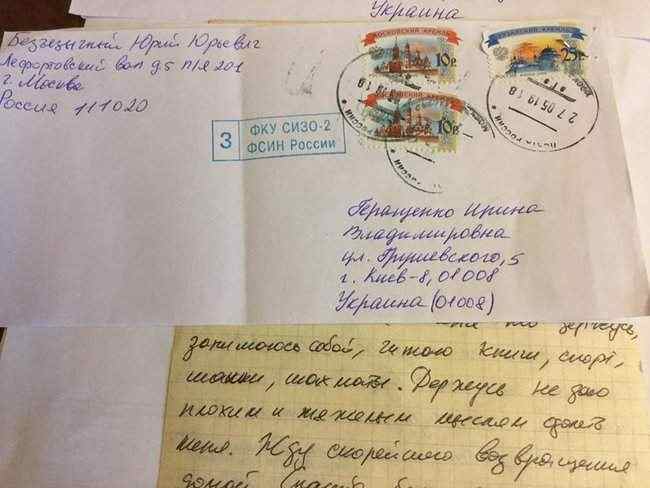 Украина
Беззязычный Юрий Юрьевич
Лефортовский вал д5 П/Я 201
г. Москва
Россия 111020
МОСКОВСКИЙ КРЕМЛЬ
10р
КАЗАНСКИЙ КРЕМЛЬ
25р
10р
ПОЧТА РОССИИ
27 05 19 18
3
ФКУ СИЗО-2
ФСИН России
Геращенко Ирина
Владимировна
ул. Грушевского, 5
г. Киев-8, 01008
Украина (01008)
держусь,
занимаюсь собой, читаю книги, спорт,
шашки, шахматы. Держусь не даю
плохим и тяжелым мыслям
меня. Жду скорейшего возвращения
домой